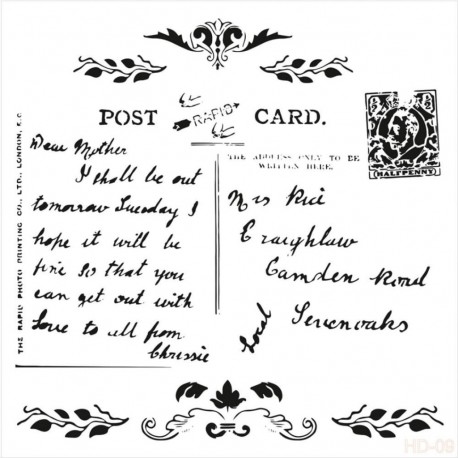 POST CARD.
RAPID
THE RAPID PHOTO PRINTING CO., LTD., LONDON, E.C.
Dear Mother
I shall be out
tomorrow Tuesday I
hope it will be
fine so that you
can get out with
Love to all from
Chrissie
THE ADDRESS ONLY TO BE
WRITTEN HERE.
½ ½
HALFPENNY
Mrs Rice
Craighlaw
Camden Road
Sevenoaks
Local
HD-09